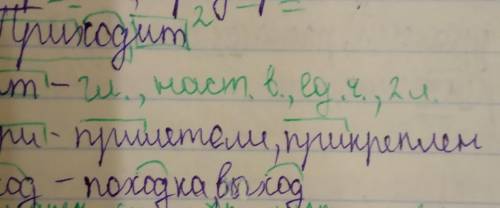 Приходит²
ит – гл., наст. в., ед. ч., 2 л.
при – прилетели, прикреплен
ход – походка, выход